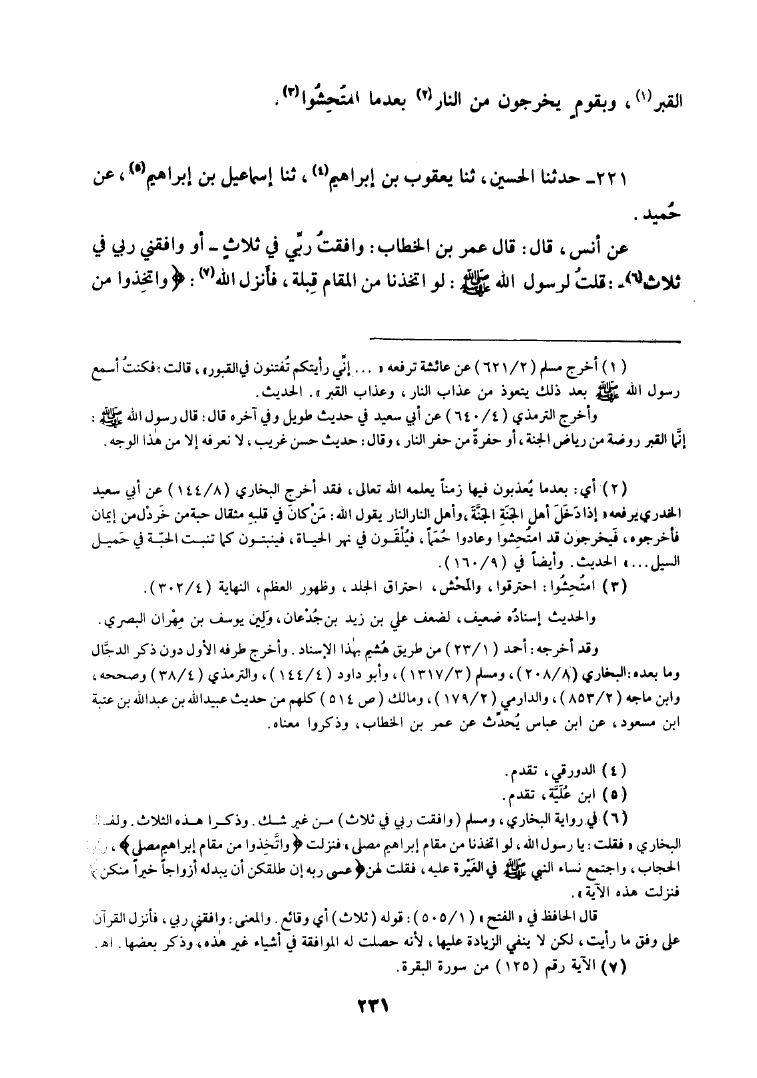 القبر(١) ، وبقومٍ يخرجون من النار(٢) بعدما امتُحِشُوا(٣) .
٢٢١ـ حدثنا الحسين ، ثنا يعقوب بن إبراهيم(٤) ، ثنا إسماعيل بن إبراهيم(٥) ، عن
حُميد .
عن أنس ، قال : قال عمر بن الخطاب : وافقتُ ربِّي في ثلاثٍ ـ أو وافقني ربي في
ثلاث(٦)ـ : قلتُ لرسول الله ﷺ : لو اتخذنا من المقام قِبلة ، فأنزل الله(٧) : ﴿ واتخِذوا من
(١) أخرج مسلم (٦٢١/٢) عن عائشة ترفعه « ... إنِّي رأيتكم تُفتنون في القبور» ، قالت : فكنتُ أسمع
رسول الله ﷺ بعد ذلك يتعوذ من عذاب النار ، وعذاب القبر » . الحديث .
وأخرج الترمذي (٦٤٠/٤) عن أبي سعيد في حديث طويل وفي آخره قال : قال رسول الله ﷺ :
إنَّما القبر روضة من رياض الجنة ، أو حفرةٌ من حفر النار ، وقال : حديث حسن غريب ، لا نعرفه إلا من هذا الوجه .
(٢) أي : بعدما يُعذبون فيها زمناً يعلمه الله تعالى ، فقد أخرج البخاري (١٤٤/٨) عن أبي سعيد
الخدري يرفعه « إذا دَخَلَ أهل الجَنَّةِ الجنَّةَ ، وأهل النار النار يقول الله : مَنْ كانَ في قلبهِ مثقال حبة من خَردْل من إيمان
فأخرجوه ، فَيخرجون قد امتُحِشوا وعادوا حُمَماً ، فيُلْقَون في نهر الحياة ، فينبتون كما تنبت الحبّة في حَميل
السيل ... » الحديث . وأيضاً في (١٦٠/٩) .
(٣) امتُحِشُوا : احترقوا ، والمَحْش ، احتراق الجلد ، وظهور العظم ، النهاية (٣٠٢/٤) .
والحديث إسنادُه ضعيف ، لضعف علي بن زيد بن جُدْعان ، ولِين يوسف بن مِهْران البصري .
وقد أخرجه : أحمد (٢٣/١) من طريق هُشيم بهذا الإسناد . وأخرج طرفه الأول دون ذكر الدجَّال
وما بعده : البخاري (٢٠٨/٨) ، ومسلم (١٣١٧/٣) ، وأبو داود (١٤٤/٤) ، والترمذي (٣٨/٤) وصححه ،
وابن ماجه (٨٥٣/٢) ، والدارمي (١٧٩/٢) ، ومالك (ص ٥١٤) كلهم من حديث عبيدالله بن عبدالله بن عتبة
ابن مسعود ، عن ابن عباس يُحدِّث عن عمر بن الخطاب ، وذكروا معناه .
(٤) الدورقي ، تقدم .
(٥) ابن عُلَيَّة ، تقدم .
(٦) في رواية البخاري ، ومسلم (وافقت ربي في ثلاث) مـن غير شـك . وذكـرا هـذه الثلاث .
البخاري « فقلت : يا رسول الله ، لو اتخذنا من مقام إبراهيم مصلى ، فنزلت ﴿ واتَّخِذوا من مقام إبراهيم مصلى ﴾ ،
الحجاب ، واجتمع نساء النبي ﷺ في الغَيْرة عليه ، فقلت لهن ﴿ عسى ربه إن طلقكن أن يبدله أزواجاً خيراً منكن ﴾
فنزلت هذه الآية » .
قال الحافظ في « الفتح » (٥٠٥/١) : قوله (ثلاث) أي وقائع . والمعنى : وافقني ربي ، فأنزل القرآن
على وفق ما رأيت ، لكن لا ينفي الزيادة عليها ، لأنه حصلت له الموافقة في أشياء غير هذه ، وذكر بعضها . اهـ .
(٧) الآية رقم (١٢٥) من سورة البقرة .
٢٣١